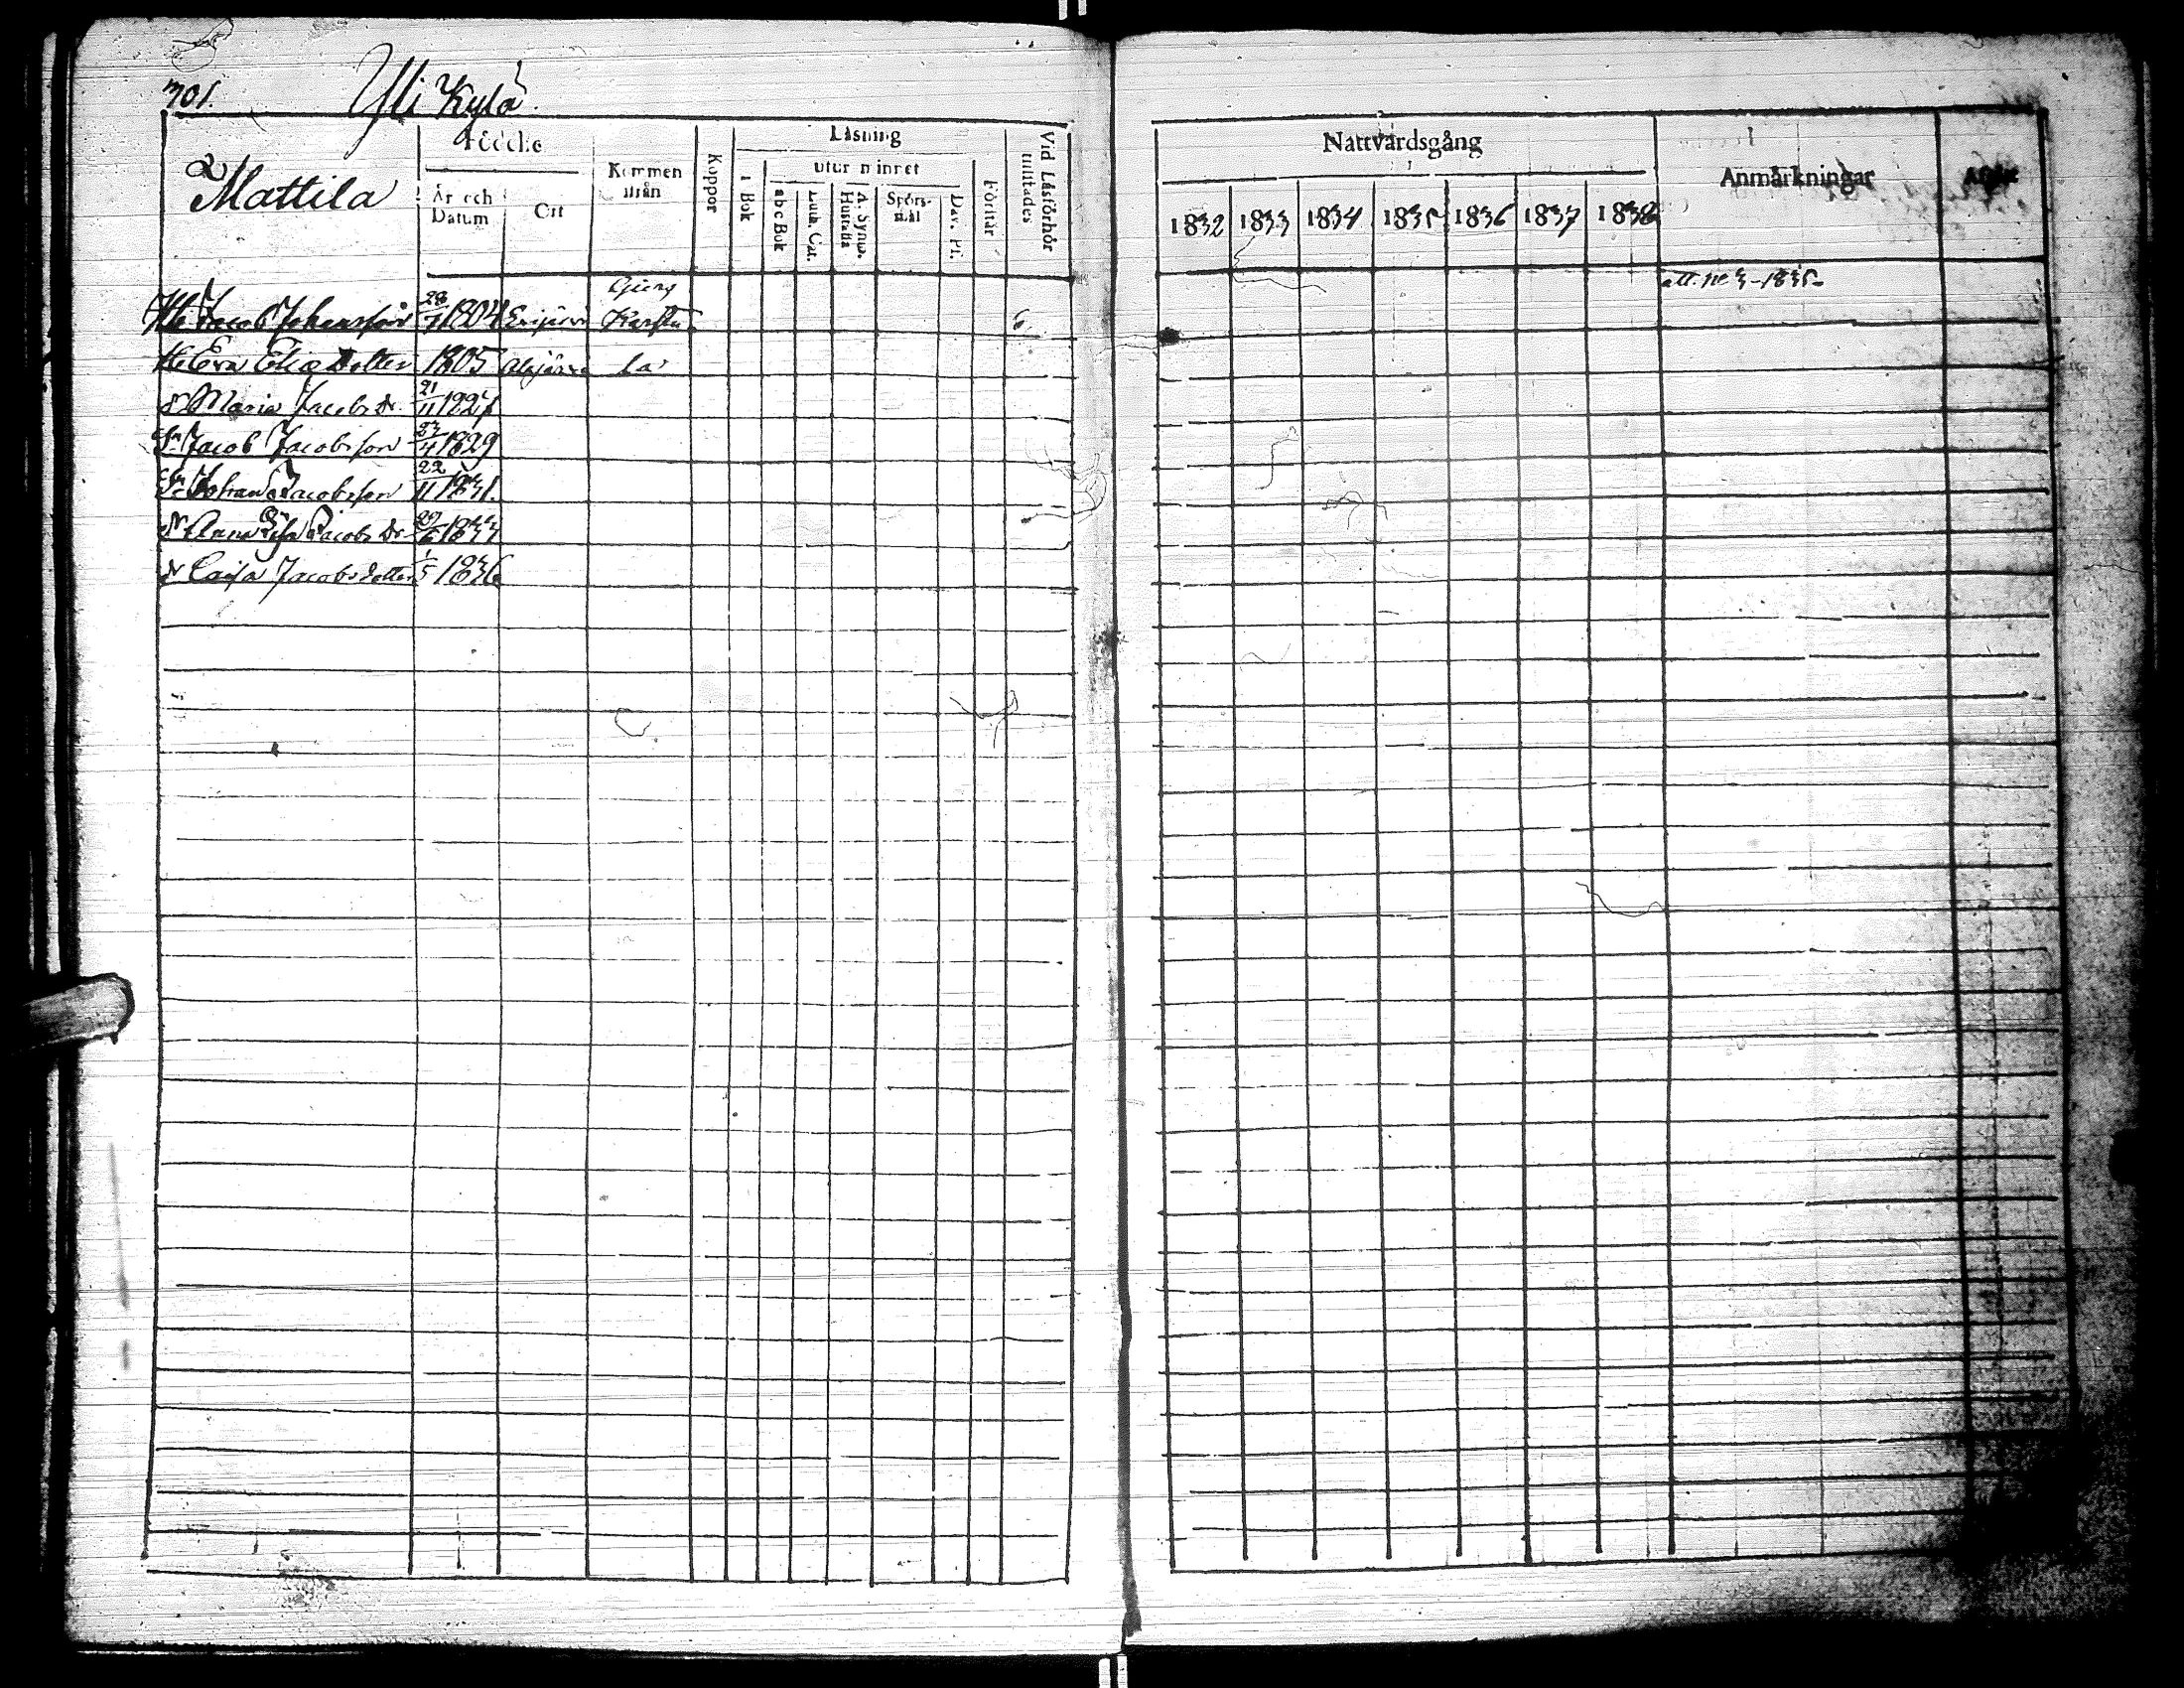 701. Yli Kylä
Mattila
Födelse
År och Datum
Ort
Kommen ifrån
Koppor
Läsning
i Bok
utur minnet
abc Bok
Luth. Cat.
A. Symb. Hustafla
Spörsmål
Dav. Ps.
Förstår
Vid Läsförhör tillstädes
Nattvardsgång
1832 1833 1834 1835 1836 1837 1838
Anmärkningar
Jacob Johansson 28/7 1804 Karstu 6
att. No 3-1835
Eva Elia Dotter 1805 Alajärvi
Dr Maria Jacobs Dr 21/11 1827
Sn Jacob Jacobsson 23/4 1829
Sn Johan Jacobsson 22/11 1831.
Dr Anna Lisa Jacobs Dr 29/6 1833
Dr Caisa Jacobsdotter 1/5 1836